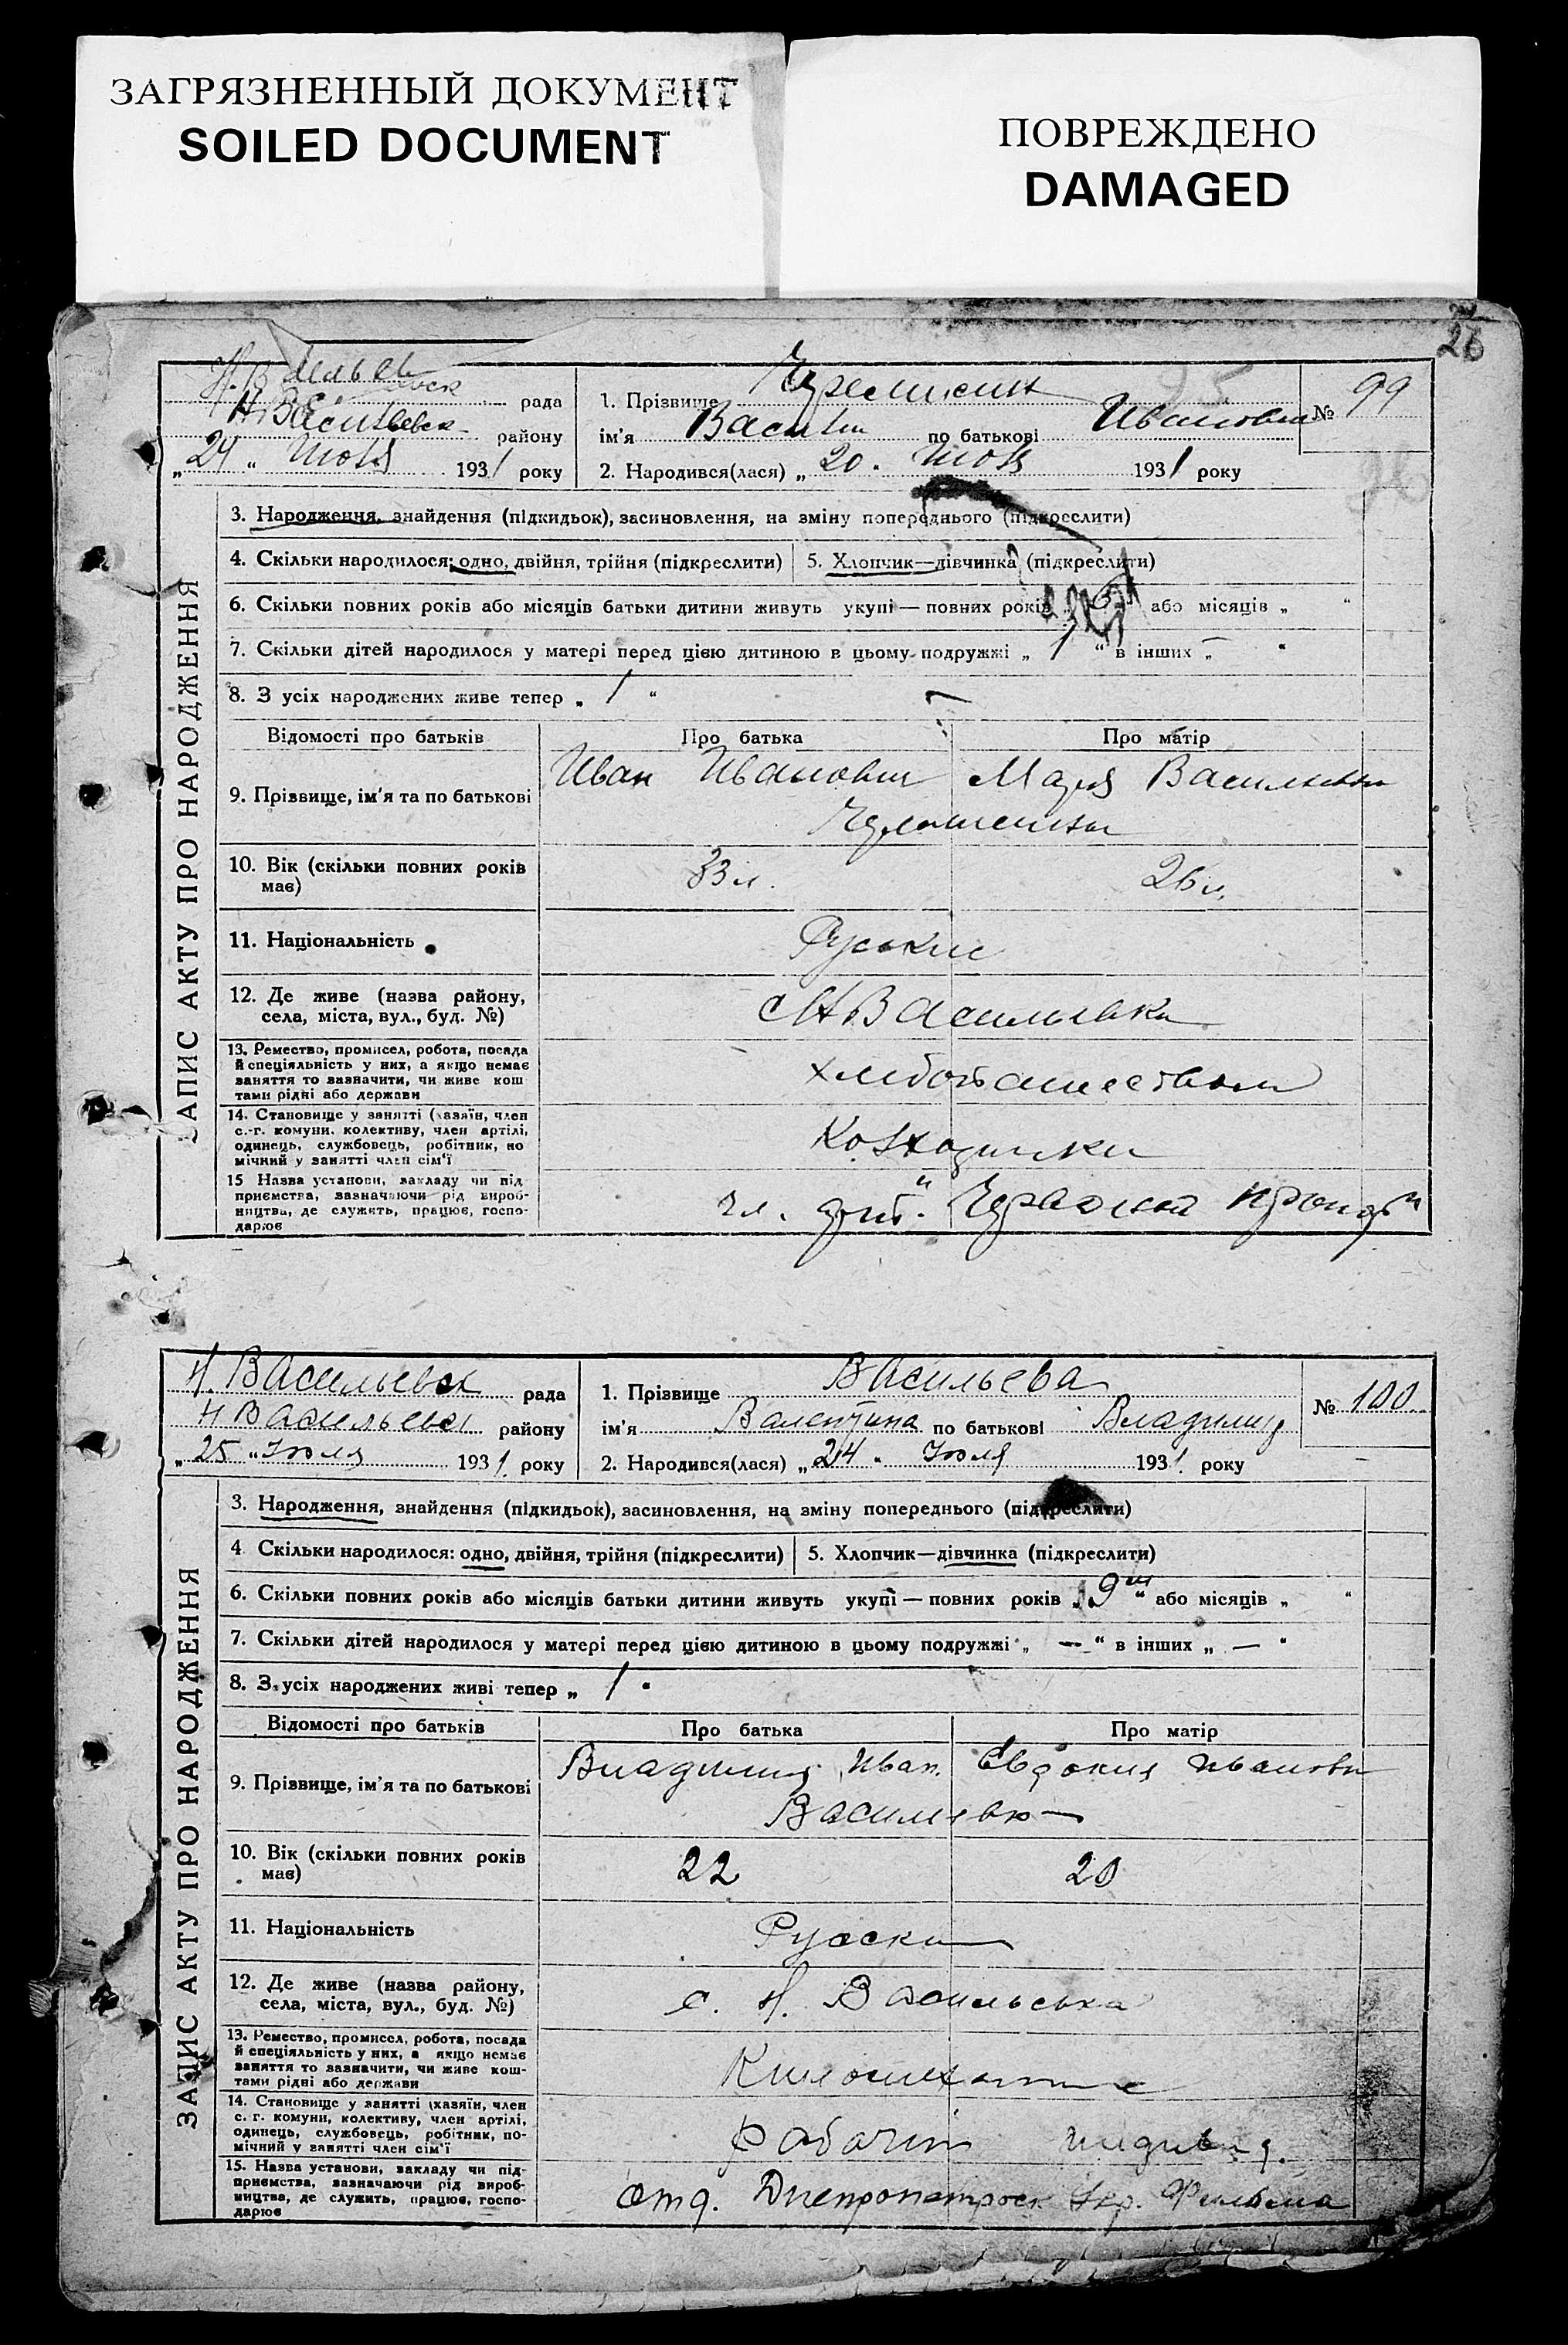 ЗАГРЯЗНЕННЫЙ ДОКУМЕНТ
SOILED DOCUMENT
ПОВРЕЖДЕНО
DAMAGED
26
ЗАПИС АКТУ ПРО НАРОДЖЕННЯ
рада
Н. Васильевск району
„ 24 " 1931 року
1. Прізвище
ім'я по батькові
2. Народився(лася) „ 20 " 1931 року
№ 99
3. Народження, знайдення (підкидьок), засиновлення, на зміну попереднього (підкреслити)
4. Скільки народилося: одно, двійня, трійня (підкреслити) 5. Хлопчик—дівчинка (підкреслити)
6. Скільки повних років або місяців батьки дитини живуть укупі — повних років або місяців „ "
7. Скільки дітей народилося у матері перед цією дитиною в цьому подружжі „ 1 " в інших „ – "
8. З усіх народжених живе тепер „ 1 "
Відомості про батьків Про батька Про матір
9. Прізвище, ім'я та по батькові Иван Иванович Мария Васильевн
10. Вік (скільки повних років має) 33 л. 26 л.
11. Національність
12. Де живе (назва району, села, міста, вул., буд. №) с Н Васильевка
13. Ремество, промисел, робота, посада й спеціяльність у них, а якщо немає заняття то зазначити, чи живе коштами рідні або держави
14. Становище у занятті (хазяїн, член с.-г. комуни, колективу, член артілі, одинець, службовець, робітник, помічний у занятті член сім'ї
15 Назва установи, закладу чи підприємства, зазначаючи рід виробництва, де служить, працює, господарює
ЗАПИС АКТУ ПРО НАРОДЖЕННЯ
Н. Васильевск рада
Н Васильевск району
„ 25 " Июля 1931 року
1. Прізвище Васильева
ім'я Валентина по батькові Владимир
2. Народився(лася) „ 24 " Июля 1931 року
№ 100
3. Народження, знайдення (підкидьок), засиновлення, на зміну попереднього (підкреслити)
4 Скільки народилося: одно, двійня, трійня (підкреслити) 5. Хлопчик—дівчинка (підкреслити)
6. Скільки повних років або місяців батьки дитини живуть укупі — повних років „ 9 м " або місяців „ "
7. Скільки дітей народилося у матері перед цією дитиною в цьому подружжі „ — " в інших „ — "
8. З усіх народжених живі тепер „ 1 "
Відомості про батьків Про батька Про матір
9. Прізвище, ім'я та по батькові Владимир Иван. Евдокия Ивановн
10. Вік (скільки повних років має) 22 20
11. Національність
12. Де живе (назва району, села, міста, вул., буд. №) с. Н. Васильевка
13. Ремество, промисел, робота, посада й спеціяльність у них, а якщо немає заняття то зазначити, чи живе коштами рідні або держави
14. Становище у занятті (хазяїн, член с. г. комуни, колективу, член артілі, одинець, службовець, робітник, помічний у занятті член сім'ї Рабочий
15. Назва установи, закладу чи підприємства, зазначаючи рід виробництва, де служить, працює, господарює отд. Днепропетровск Укр. Фильма